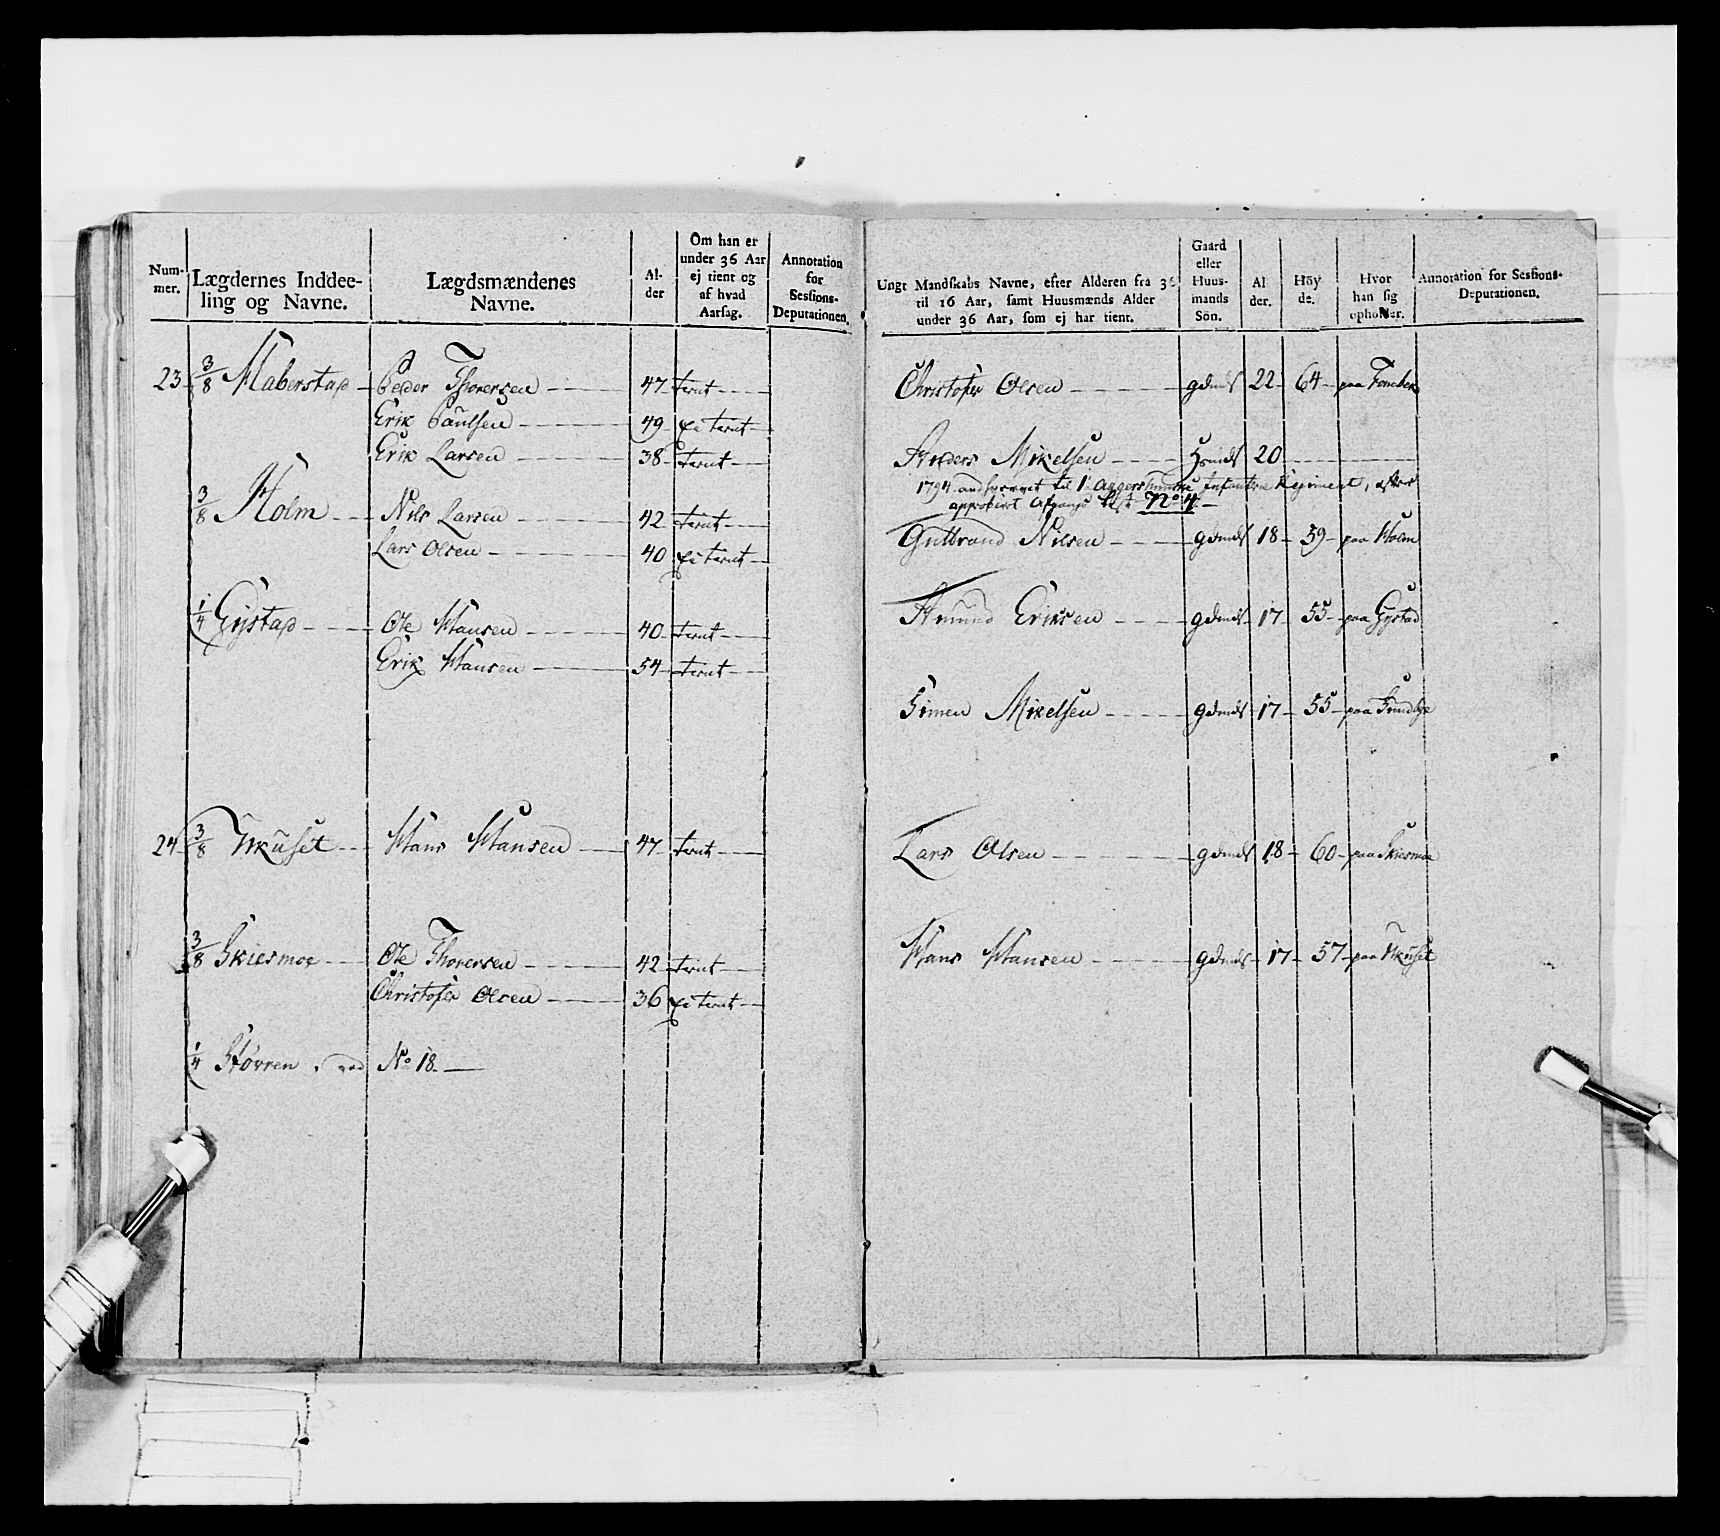 Num-
mer.
Lægdernes Inddee-
ling og Navne.
Lægdsmændenes
Navne.
Al-
der
Om han er
under 36 Aar
ej tient og
af hvad
Aarsag.
Annotation
for
Sessions-
Deputationen.
23 3/8 Haberstad Peder Thoresen 47 tient
Erik Paulsen 49 ei tient
Erik Larsen 38 tient
3/8 Holm Nils Larsen 42 tient
Lars Olsen 40 ei tient
1/4 Gystad Ole Hansen 40 tient
Erik Hansen 54 tient
24 3/8 Hans Hansen 47 tient
3/8 Skiesmoe Ole Thoresen 42 tient
Christofer Olsen 36 ei tient
1/4 Størren No 18
Ungt Mandskabs Navne, efter Alderen fra 36
til 16 Aar, samt Huusmænds Alder
under 36 Aar, som ej har tient.
Gaard
eller
Huus-
mands
Sön.
Al
der.
Höy
de.
Hvor
han sig
opholder.
Annotation for Sessions-
Deputationen.
Christofer Olsen gdmds 22 64 paa
Anders Mikelsen Hsmds 20
1794 til 1te Aggershuuske Infanterie Regiment, efter
approbirt Afgangs Liste No 4
Gulbrand Nilsen gdmds 18 59 paa Holm
Amund Eriksen gdmds 17 55 paa Gystad
Simen Mikelsen gdmds 17 55 paa
Lars Olsen gdmds 18 60 paa Skiesmoe
Hans Hansen gdmds 17 57 paa